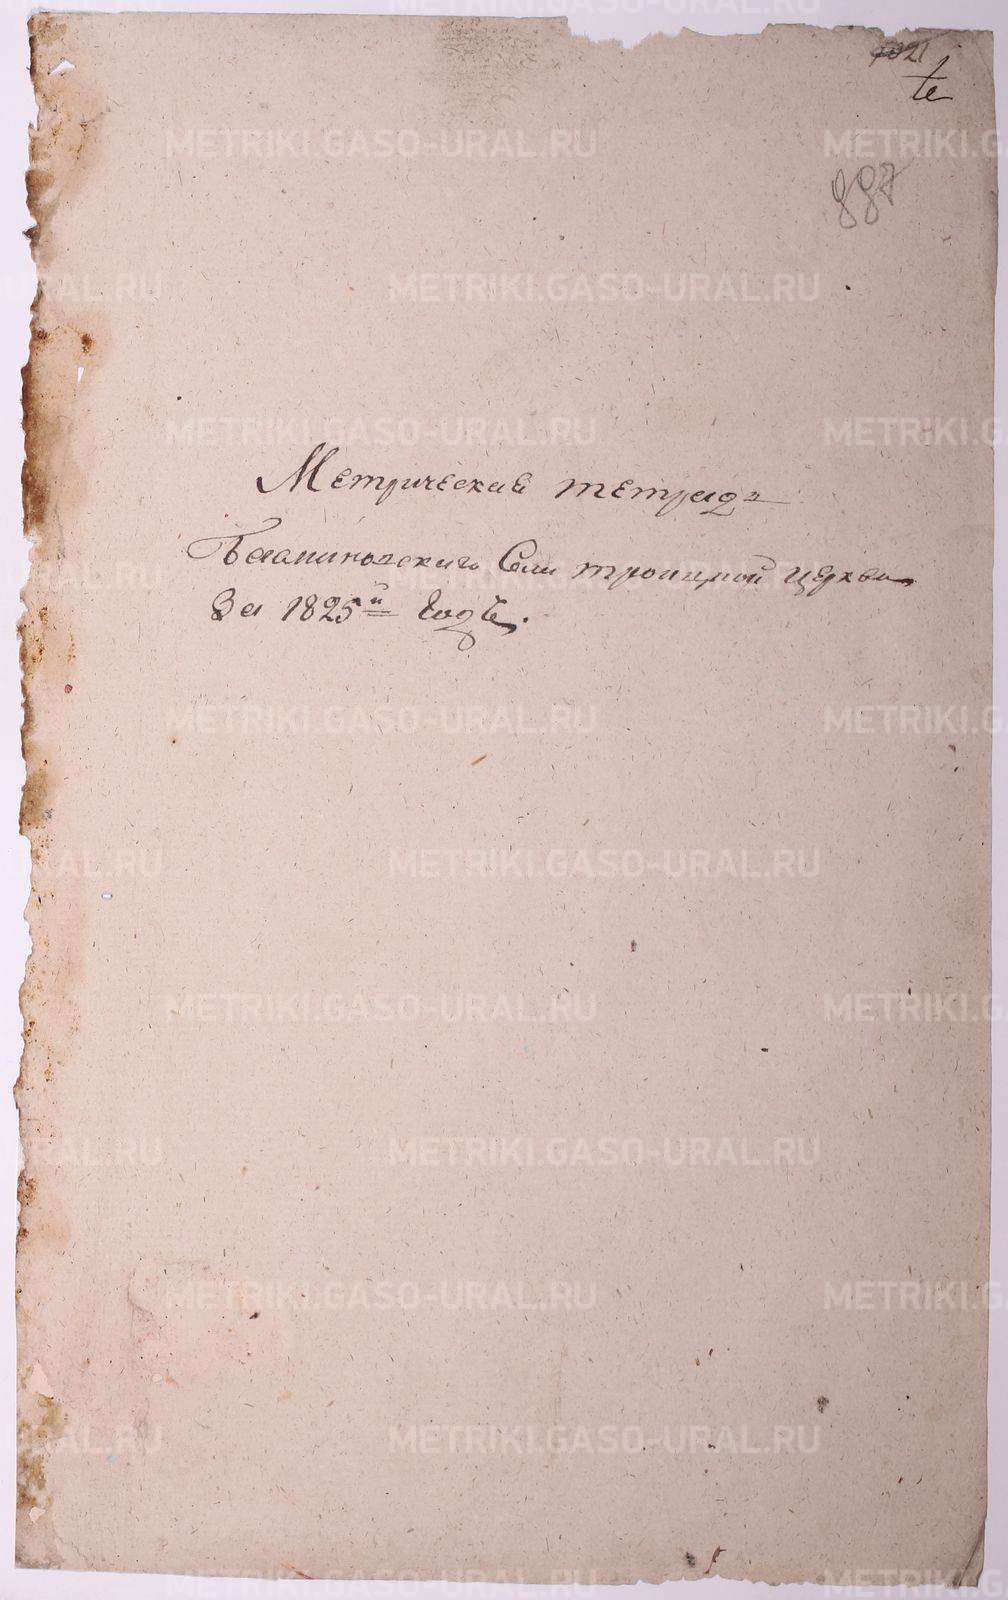 1021
887
Метрическия тетрадь
Села троицкой церкви
За 1825й Годъ.
METRIKI.GASO-URAL.RU